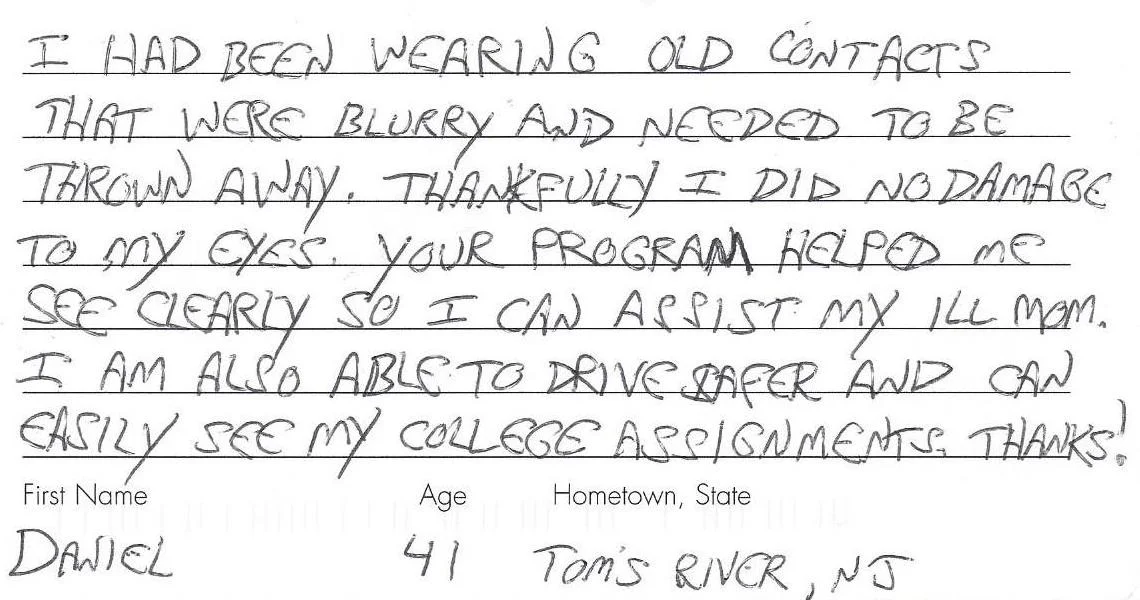 I HAD BEEN WEARING OLD CONTACTS
THAT WERE BLURRY AND NEEDED TO BE
THROWN AWAY. THANKFULLY I DID NO DAMAGE
TO MY EYES. YOUR PROGRAM HELPED ME
SEE CLEARLY SO I CAN ASSIST MY ILL MOM.
I AM ALSO ABLE TO DRIVE SAFER AND CAN
EASILY SEE MY COLLEGE ASSIGNMENTS. THANKS!
First Name Age Hometown, State
DANIEL 41 TOM'S RIVER, NJ